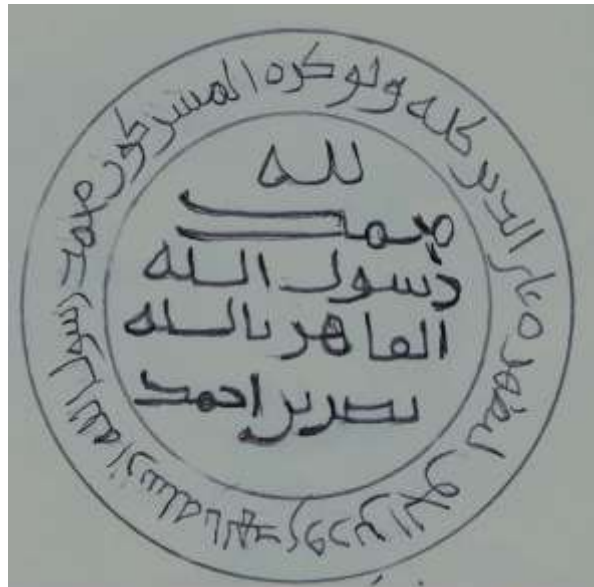 لله
محمد
رسول الله
القاهر بالله
نصر بن احمد
محمد رسول الله ارسله بالهدى ودين الحق ليظهره على الدين كله ولو كره المشركون